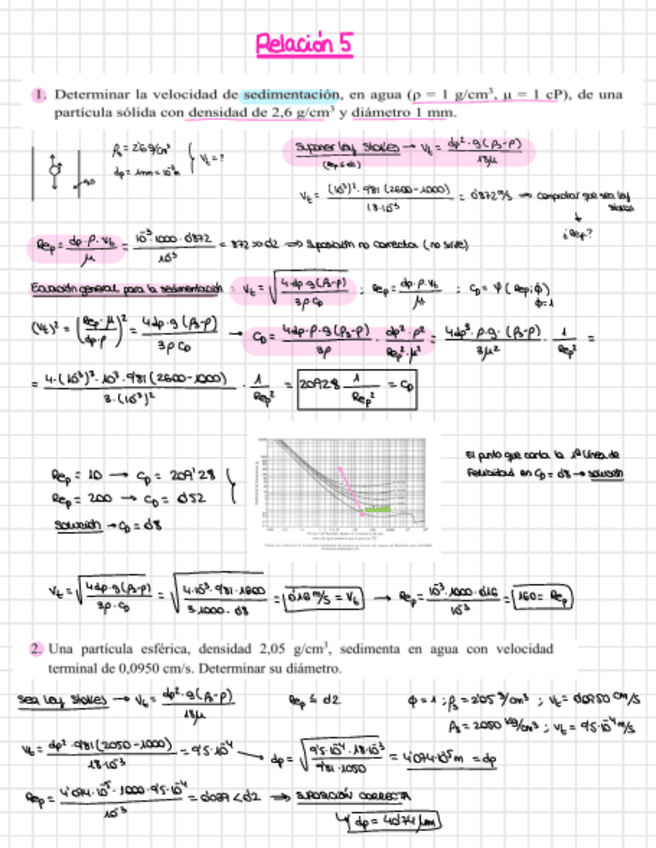 Relación 5
1. Determinar la velocidad de sedimentación, en agua (ρ = 1 g/cm³, μ = 1 cP), de una
partícula sólida con densidad de 2,6 g/cm³ y diámetro 1 mm.
ρs = 2'6 g/cm³
dp = 1mm = 10⁻³m
Vt = ?
Suponer Ley Stokes → Vt = dp²·g(ρs-ρ) / 18μ
Vt = (10⁻³)²·9'81(2600-1000) / 18·10⁻³ = 0'872 m/s → comprobar que sea ley Stokes
¿Rep?
Rep = dp·ρ·Vt / μ = 10⁻³·1000·0'872 / 10⁻³ = 872 >> 0'2 ⇒ Suposición no correcta (no sirve)
Ecuación general para la sedimentación: Vt = √(4·dp·g(ρs-ρ) / 3ρ CD) ; Rep = dp·ρ·Vt / μ ; CD = φ(Rep, ϕ)
ϕ=1
(Vt)² = (Rep·μ / dp·ρ)² = 4dp·g(ρs-ρ) / 3ρ CD → CD = 4dp·ρ·g(ρs-ρ) / 3ρ · dp²·ρ² / Rep²·μ² = 4dp³·ρ·g·(ρs-ρ) / 3μ² · 1 / Rep² =
= 4·(10⁻³)³·10³·9'81(2600-1000) / 3·(10⁻³)² · 1 / Rep² = 20928 1 / Rep² = CD
Rep = 10 → CD = 209'28
Rep = 200 → CD = 0'52
Solución → CD = 0'8
El punto que corta la 1ª línea de
esfericidad en CD = 0'8 → solución
Vt = √(4dp·g(ρs-ρ) / 3ρ·CD) = √(4·10⁻³·9'81·1600 / 3·1000·0'8) = 0'16 m/s = Vt → Rep = 10⁻³·1000·0'16 / 10⁻³ = 160 = Rep
2. Una partícula esférica, densidad 2,05 g/cm³, sedimenta en agua con velocidad
terminal de 0,0950 cm/s. Determinar su diámetro.
Sea Ley Stokes → Vt = dp²·g(ρs-ρ) / 18μ
Rep ≤ 0'2
ϕ = 1 ; ρs = 2'05 g/cm³ ; Vt = 0'0950 cm/s
ρs = 2050 kg/m³ ; Vt = 9'5·10⁻⁴ m/s
Vt = dp²·9'81(2050-1000) / 18·10⁻³ = 9'5·10⁻⁴ → dp = √(9'5·10⁻⁴·18·10⁻³ / 9'81·1050) = 4'074·10⁻⁵ m = dp
Rep = 4'074·10⁻⁵·1000·9'5·10⁻⁴ / 10⁻³ = 0'039 < 0'2 ⇒ SUPOSICIÓN CORRECTA
dp = 40'74 μm